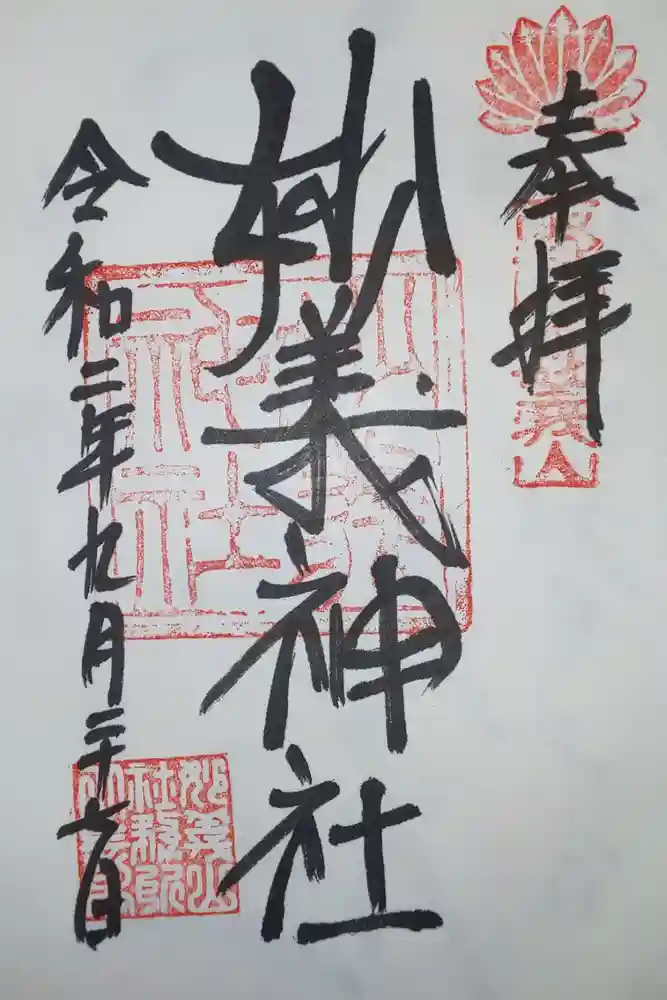 奉拝
妙義神社
令和二年九月二十六日